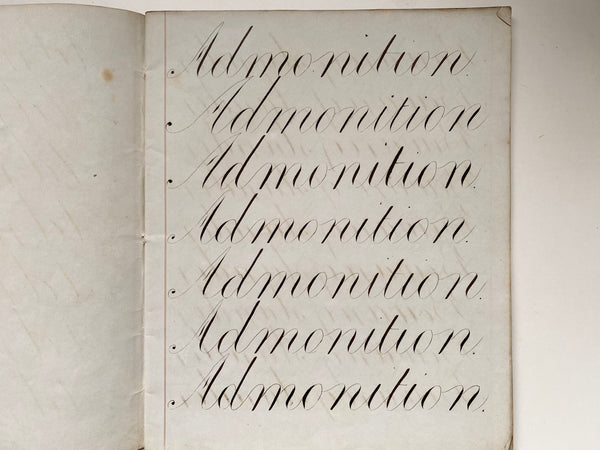 Admonition.
Admonition
Admonition.
Admonition.
Admonition.
Admonition.
Admonition.